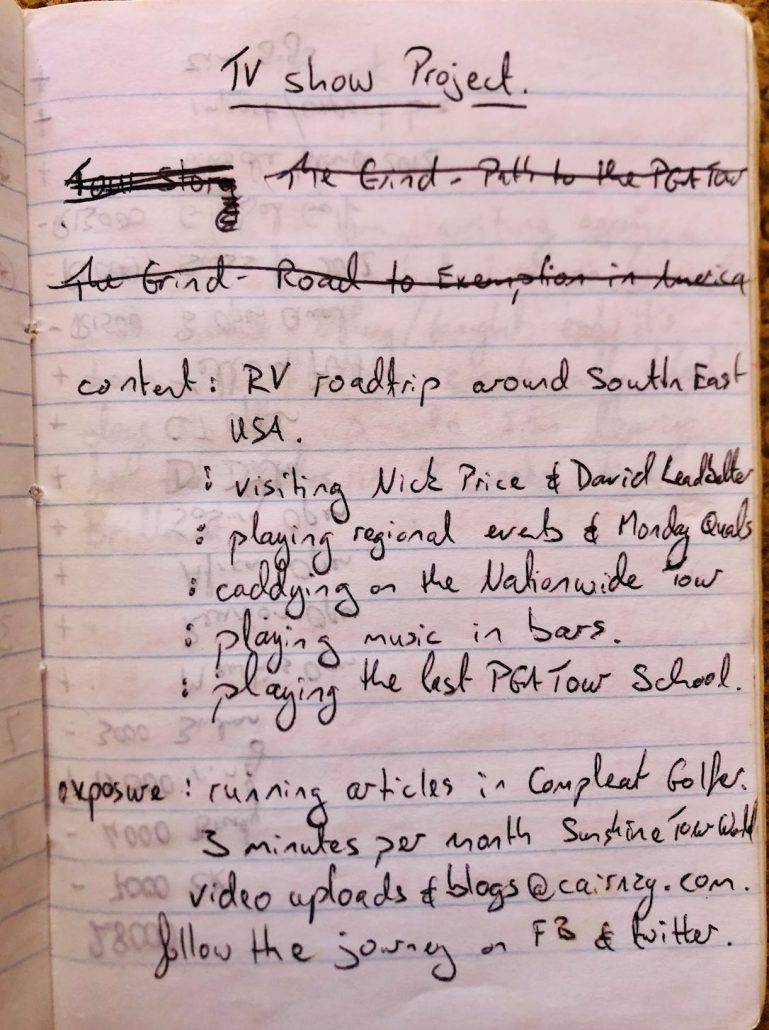 TV show Project.
Tour Story The Grind - Path to the PGA Tour
The Grind - Road to Exemption in America
content: RV roadtrip around South East
USA.
: visiting Nick Price & David Leadbetter
: playing regional events & Monday Quals
: caddying on the Nationwide Tour
: playing music in bars.
: playing the last PGA Tour School.
exposure: running articles in Compleat Golfer.
3 minutes per month Sunshine Tour World
video uploads & blogs@cairnzy.com.
follow the journey on FB & twitter.